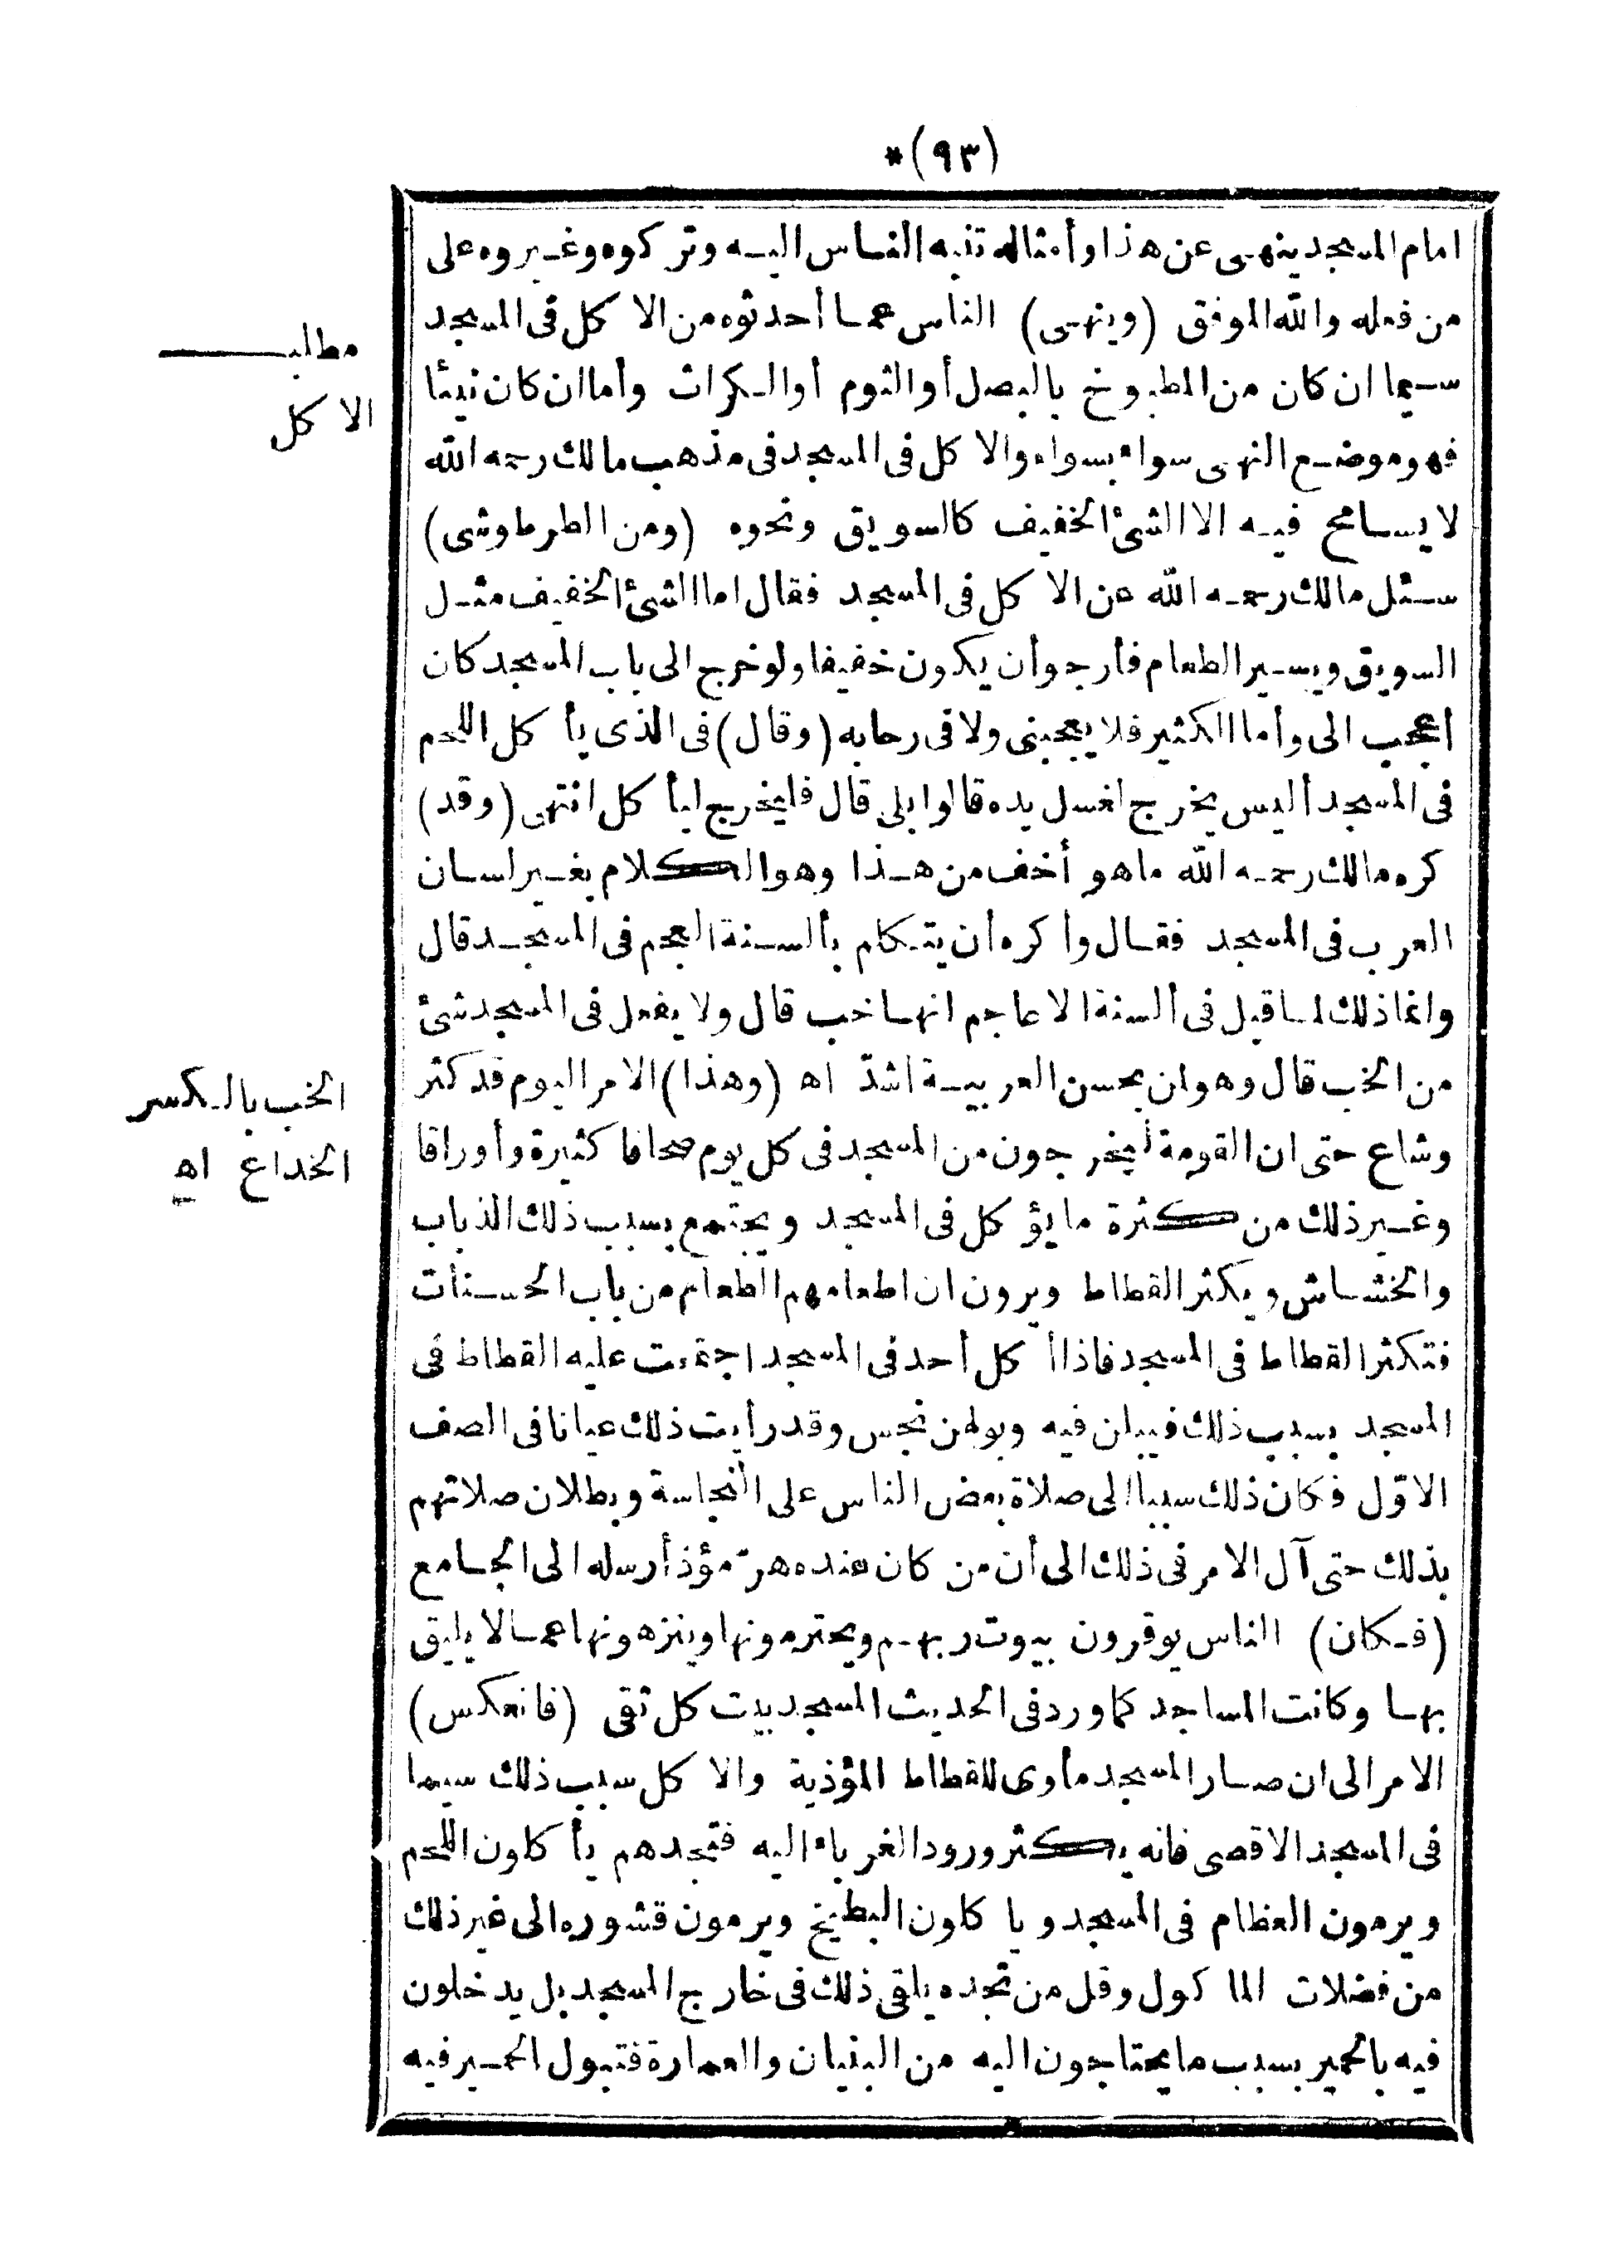 (٩٣)*
امام المسجد ينهى عن هذا وأمثاله تنبه الناس اليه وتركوه وغيروه على
من فعله والله الموفق (وينهى) الناس عما أحدثوه من الاكل فى المسجد
سيما ان كان من المطبوخ بالبصل أو الثوم أو الكراث وأما ان كان نيئا
فهو موضع النهى سواء بسواء والاكل فى المسجد فى مذهب مالك رحمه الله
لا يسامح فيه الا الشئ الخفيف كالسويق ونحوه (ومن الطرطوشى)
سئل مالك رحمه الله عن الاكل فى المسجد فقال اما الشئ الخفيف مثل
السويق ويسير الطعام فأرجو أن يكون خفيفا ولو خرج الى باب المسجد كان
أعجب الى وأما الكثير فلا يعجبنى ولا فى رحابه (وقال) فى الذى يأكل اللحم
فى المسجد أليس يخرج لغسل يده قالوا بلى قال فليخرج ليأكل انتهى (وقد)
كره مالك رحمه الله ما هو أخف من هذا وهو الكلام بغير لسان
العرب فى المسجد فقال وأكره أن يتكلم بألسنة العجم فى المسجد قال
وانما ذلك لما قيل فى ألسنة الاعاجم انها خب قال ولا يفعل فى المسجد شئ
من الخب قال وهو ان يحسن العربية اشدّ اه (وهذا) الامر اليوم قد كثر
وشاع حتى ان القومة ليخرجون من المسجد فى كل يوم صحافا كثيرة وأوراقا
وغير ذلك من كثرة ما يؤكل فى المسجد ويجتمع بسبب ذلك الذباب
والخشاش ويكثر القطاط ويرون ان اطعامهم الطعام من باب الحسنات
فتكثر القطاط فى المسجد فاذا أكل أحد فى المسجد اجتمعت عليه القطاط فى
المسجد بسبب ذلك فيبلن فيه وبولهن نجس وقد رأيت ذلك عيانا فى الصف
الاوّل فكان ذلك سببا الى صلاة بعض الناس على النجاسة وبطلان صلاتهم
بذلك حتى آل الامر فى ذلك الى أن من كان عنده هرّ مؤذ أرسله الى الجامع
(فكان) الناس يوقرون بيوت ربهم ويحترمونها وينزهونها عما لا يليق
بها وكانت المساجد كما ورد فى الحديث المسجد بيت كل تقى (فانعكس)
الامر الى ان صار المسجد مأوى للقطاط المؤذية والاكل سبب ذلك سيما
فى المسجد الاقصى فانه يكثر ورود الغرباء اليه فتجدهم يأكلون اللحم
ويرمون العظام فى المسجد وياكلون البطيخ ويرمون قشوره الى غير ذلك
من فضلات الماكول وقل من تجده يلقى ذلك فى خارج المسجد بل يدخلون
فيه بالحمير بسبب ما يحتاجون اليه من البنيان والعمارة فتبول الحمير فيه
مطلب
الاكل
الخب بالكسر
الخداع اه